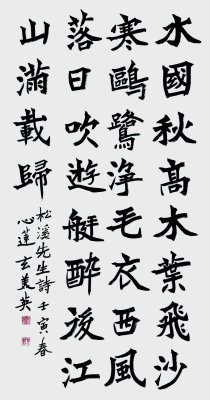 水國秋高木葉飛沙
寒鷗鷺淨毛衣西風
落日吹遊艇醉後江
山滿載歸
松溪先生詩壬寅春
心蓮玄美英